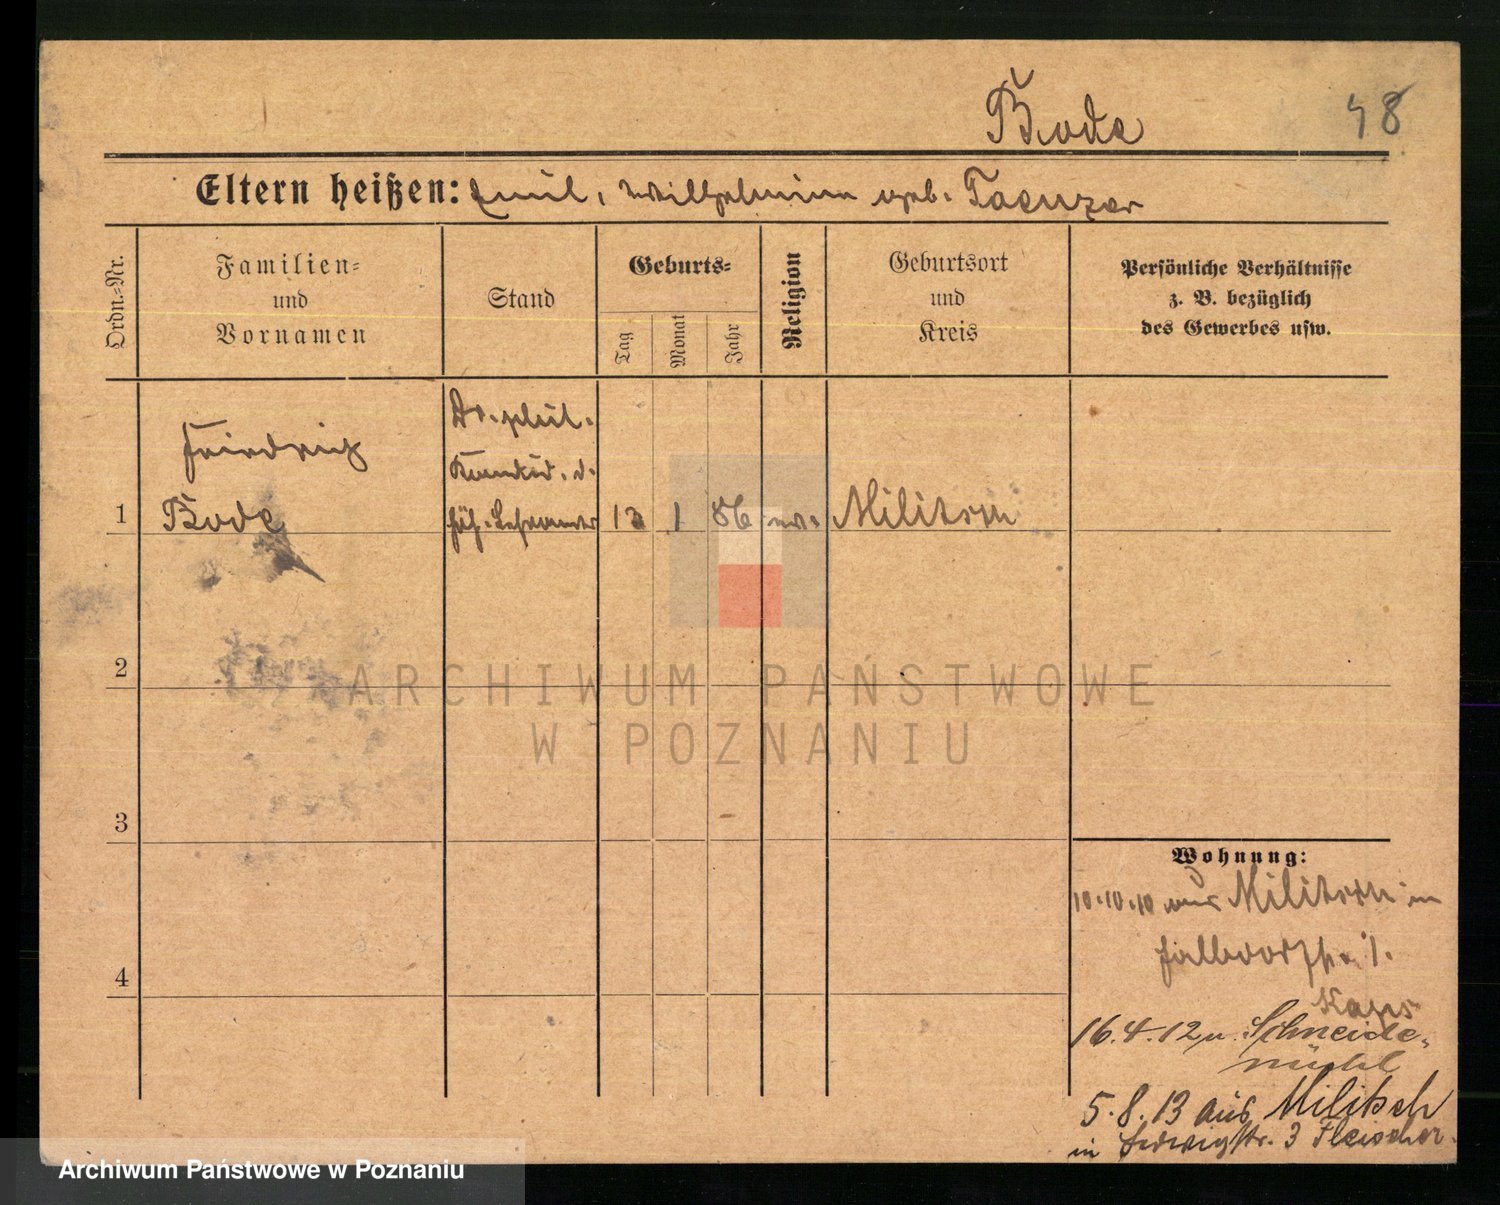 Bode
48
Eltern heißen: Emil, Wilhelmine geb. Taenzer
Ordn.-Nr.
Familien-
und
Vornamen
Stand
Geburts-
Tag
Monat
Jahr
Religion
Geburtsort
und
Kreis
Persönliche Verhältnisse
z. B. bezüglich
des Gewerbes usw.
1
Friedrich
Bode
Dr. phil.
Kandid. d.
höh. Lehramts
13
1
86
ev.
Militsch
2
ARCHIWUM PAŃSTWOWE
W POZNANIU
3
4
Wohnung:
10.10.10 aus Militsch in
1.
16.4.12 n. Schneide-
mühl
5.8.13 aus Militsch
in Hedwigstr. 3 Fleischer.
Archiwum Państwowe w Poznaniu